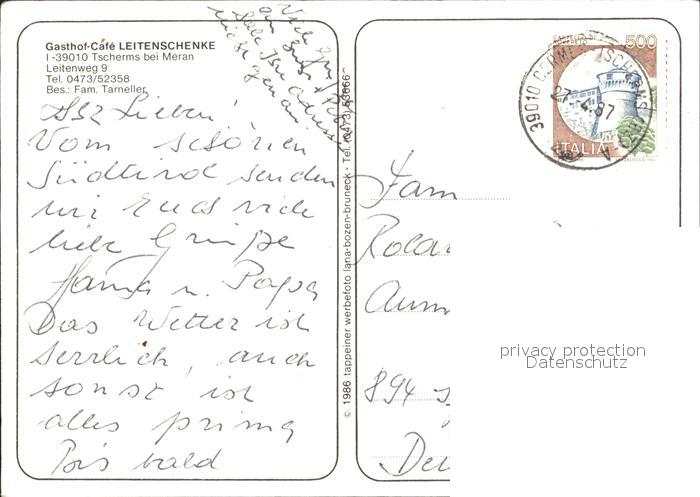 Gasthof-Café LEITENSCHENKE
I-39010 Tscherms bei Meran
Leitenweg 9
Tel. 0473/52358
Bes.: Fam. Tarneller
Ihr Lieben!
Vom schönen
Südtirol senden
wir Euch viele
liebe Grüße
Hanna u. Papa
Das Wetter ist
herrlich, auch
sonst ist
alles prima
Bis bald
© 1986 tappeiner werbefoto lana-bozen-bruneck · Tel. (0473) 53666
500
ITALIA
39010 CERMES TSCHERMS
27.4.87
Fam
Rolan
Aum
894
Deu
privacy protection
Datenschutz